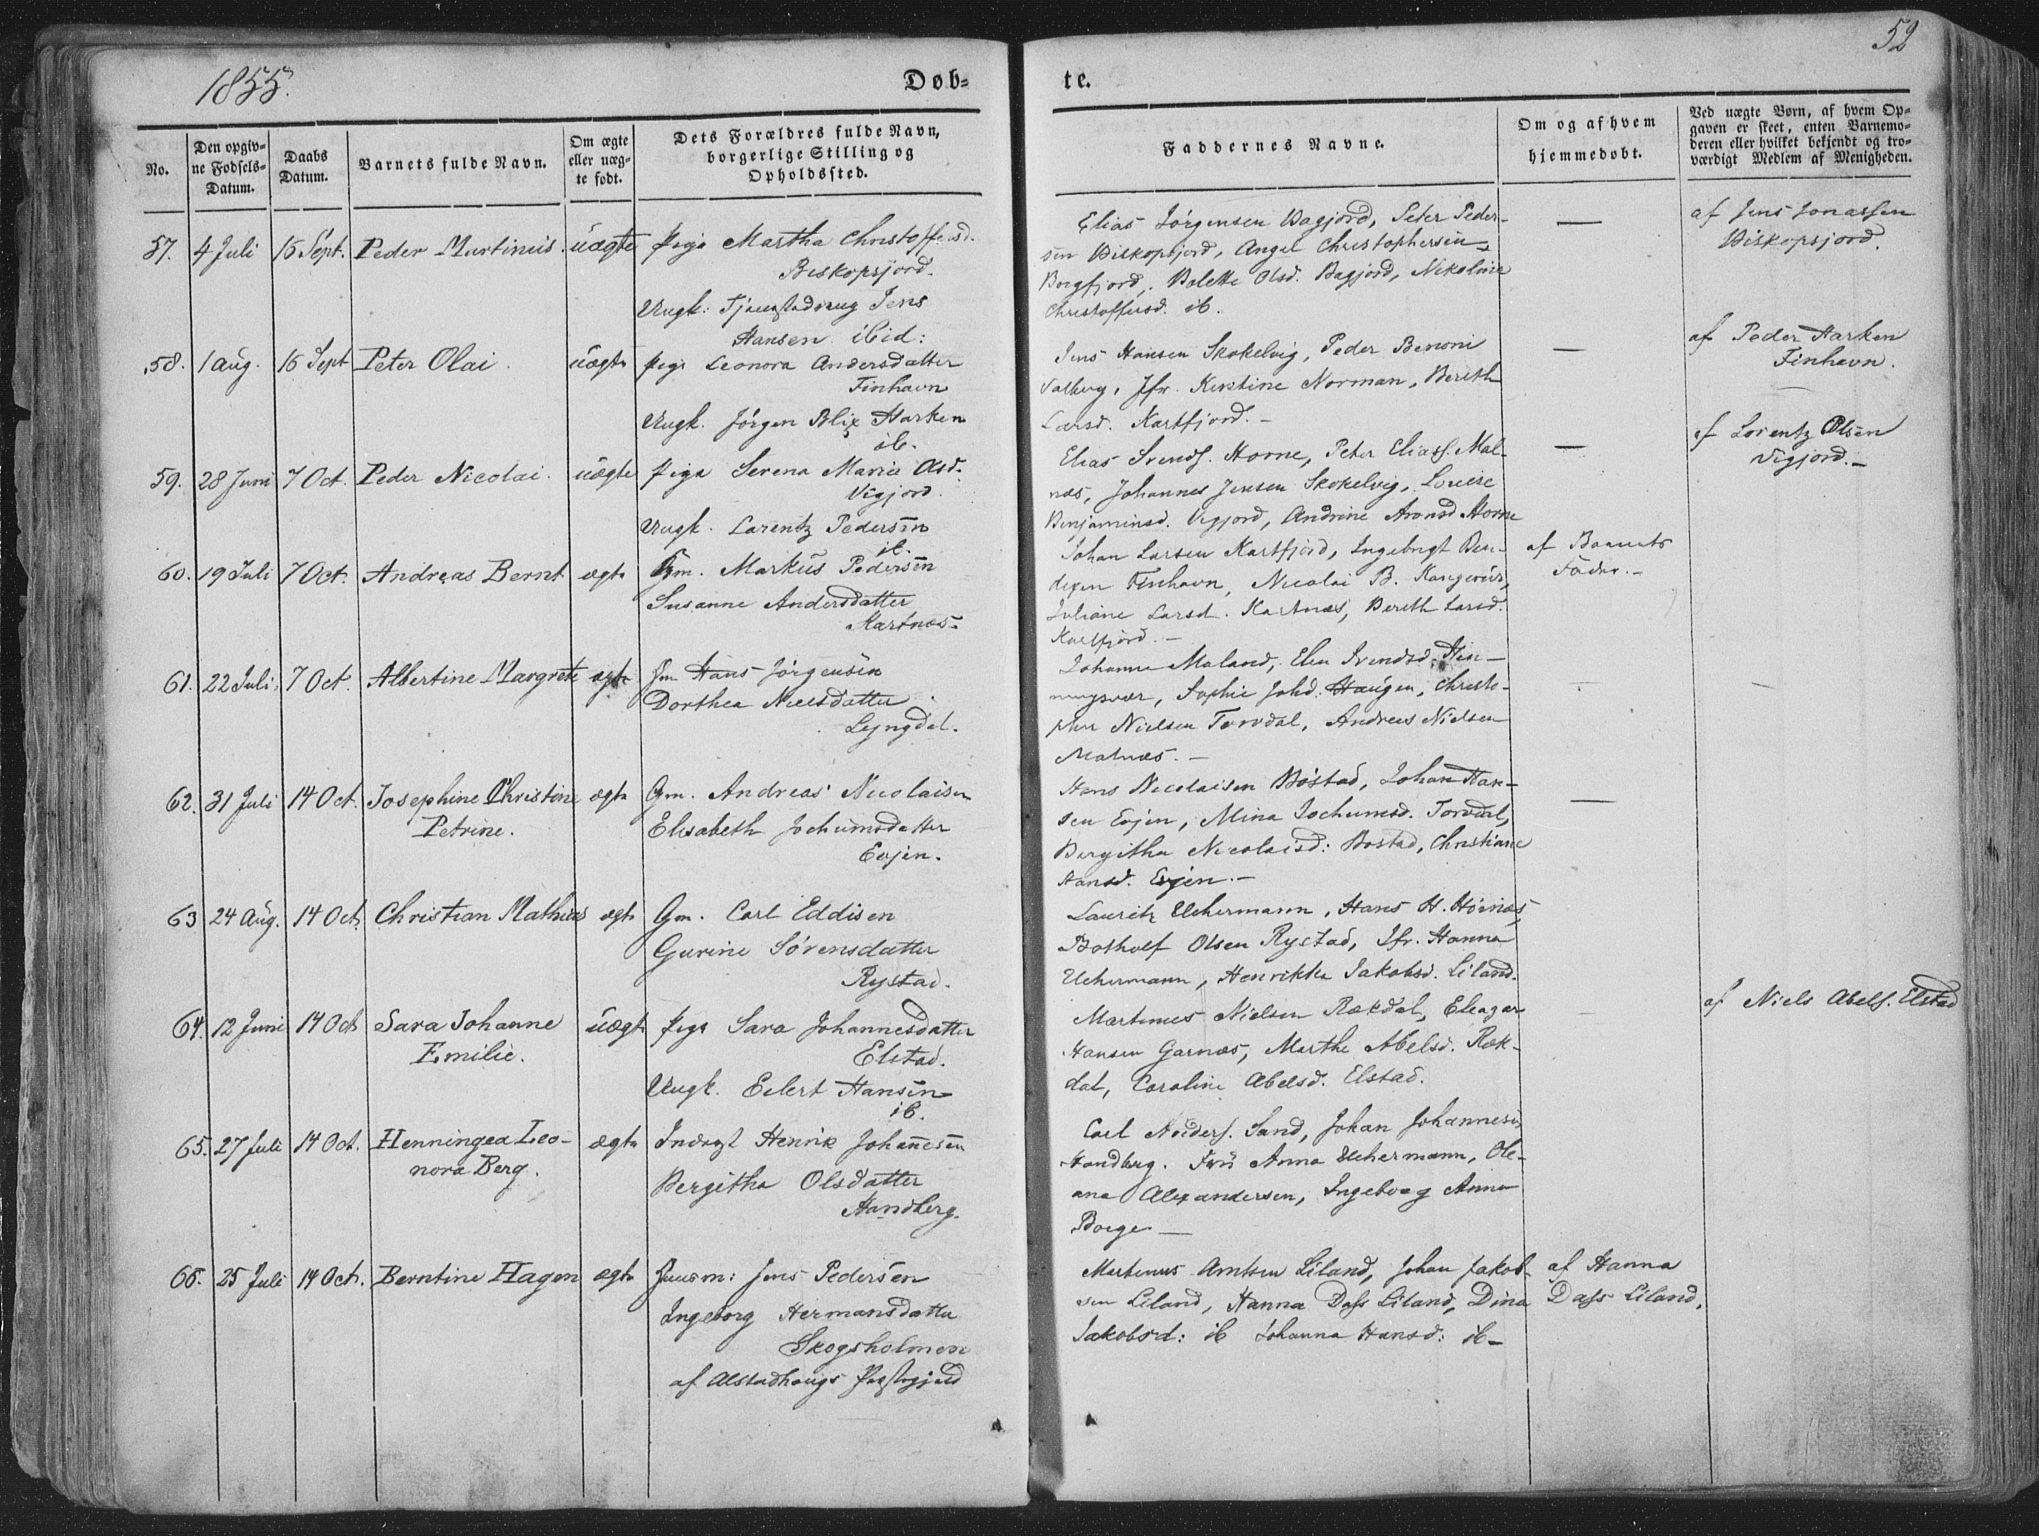 1855.
Døb-
te.
52
No.
Den opgiv-
ne Fødsels-
Datum.
Daabs
Datum.
Barnets fulde Navn.
Om ægte
eller uæg-
te født.
Dets Forældres fulde Navn,
borgerlige Stilling og
Opholdssted.
Faddernes Navne.
Om og af hvem
hjemmedøbt.
Ved uægte Børn, af hvem Op-
gaven er skeet, enten Barnemo-
deren eller hvilket bekjendt og tro-
værdigt Medlem af Menigheden.
57. 4 Juli 16 Sept. Peder Martinus. uægte Pige Martha Christoffersd.
Biskopsjord.
Ungk: Jens
Hansen ibid:
Elias Jörgensen Bagjord, Peter Peder-
sen Biskopsjord, Angel Christophersen
Bolette Olsd. Bagjord, Nikoline
Christoffersd. ib.
—
af Jens Jonassen
Biskopsjord.
58. 1 Aug. 16 Sept Peter Olai. uægte Pige Leonora Andersdatter
Finhavn
Ungk. Jörgen Blix Harken
ib.
Jens Hansen Skokelvig, Peder Benoni
Valberg, Jfr. Kirstine Norman, Bereth
Larsd. Kartfjord. —
—
af Peder Harken
Finhavn.
59. 28 Juni 7 Oct. Peder Nicolai. uægte Pige Serena Maria Olsd.
Vigjord.
Ungk. Lorentz Pedersen
ib.
Elias Svends. Horne, Peter Eliass. Mal-
næs, Johannes Jensen Skokelvig, Lovise
Benjaminsd. Vigjord, Andrine Aronsd Horne
—
af Lorentz Olsen
Vigjord. —
60. 19 Juli 7 Oct. Andreas Bernt ægte Gm. Markus Pedersen
Susanne Andersdatter
Kartnæs.
Johan Larsen Kartfjord, Ingebrigt Ben-
dixen Finhavn, Nicolai B.
Juliane Larsd. Kartnæs, Bereth Larsd.
Kartfjord. —
af Barnets
Fader. —
61. 22 Juli 7 Oct. Albertine Margrete ægte Gm Hans Jörgensen
Dorthea Nielsdatter
Lyngdal.
Johanne Maland, Elen Svendsd. Hen-
ningsvær, Sophie Johd. Haugen, Christo-
pher Nielsen Torvdal, Andreas Nielsen
Malnæs. —
62. 31 Juli 14 Oct. Josephine Christine ægte Gm. Andreas Nicolaisen
Petrine.
Elisabeth Jochumsdatter
Evjen.
Hans Nicolaisen Böstad, Johan Han-
sen Evjen, Mina Jochumsd. Torvdal,
Bergitha Nicolaisd: Bostad, Christiane
Hansd. Evjen. —
—
63 24 Aug. 14 Oct. Christian Mathias ægte Gm. Carl Eddisen
Gurine Sörensdatter
Rystad.
Lauritz Uchermann, Hans H. Höinæs,
Botholf Olsen Rystad, Jfr. Hanna
Uchermann, Henrikke Jakobsd. Liland.
64. 12 Juni 14 Oct Sara Johanne uægte Pige Sara Johannesdatter
Emilie.
Elstad.
Ungk. Eilert Hansen
ib.
Martinus Nielsen Rækdal, Eleazar
Hansen Garnæs, Marthe Abelsd. Ræk-
dal, Caroline Abelsd. Elstad.
af Niels Abels. Elstad
65. 27 Juli 14 Oct. Henningea Leo-
nora Berg. ægte Inderst Henrik Johannesen
Bergitha Olsdatter
Handberg.
Carl Anders. Sand, Johan Johannesen
Handberg. Fru Anna Uchermann, Ole-
ana Alexandersen, Ingeborg Anna
Borge —
66. 25 Juli 14 Oct. Berntine Hagen ægte Huusm: Jens Pedersen
Ingeborg Hermansdatter
Skogsholmen
af Alstadhougs Præstegjæld
Martinus Arntsen Liland, Johan Jakob-
sen Liland, Hanna Dass Liland, Dina
Jakobsd: ib Johanna Hansd: ib —
af Hanna
Dass Liland.